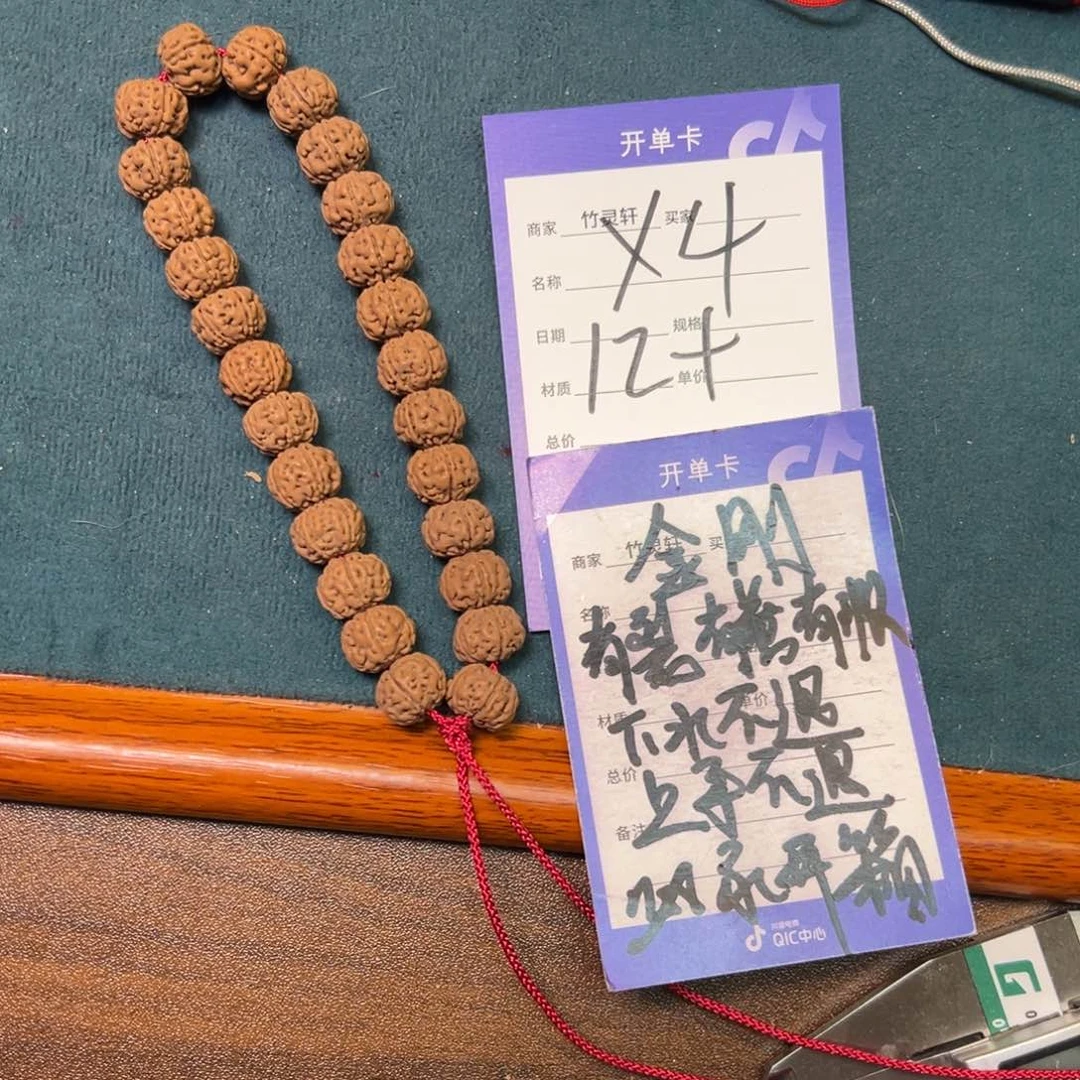 开单卡
商家 竹灵轩 买家
X4
名称
日期 规格
12+
材质 单价
总价
开单卡
商家 竹灵轩 买
金刚
名称
有裂有补有瑕
单价
材质
下水不退
总价
上手不退
备注
抖音电商
QIC中心